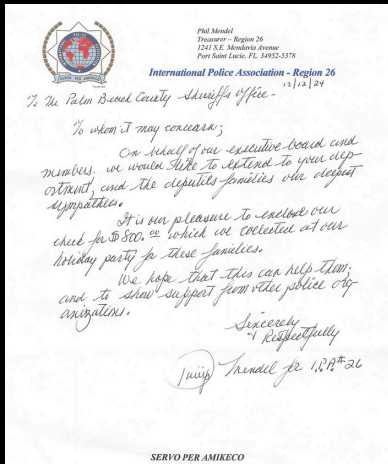 Phil Mendel
Treasurer – Region 26
1241 S.E. Mendavia Avenue
Port Saint Lucie, FL 34952-5378
International Police Association - Region 26
12/12/24
To The Palm Beach County Sheriff's Office -
To whom it may concern;
On behalf of our executive board and
members, we would like to extend to your dep-
artment, and the deputies families our deepest
sympathies.
It is our pleasure to enclose our
check for $800.00 which we collected at our
holiday party for these families.
We hope that this can help them;
and to show support from other police org-
anizations.
Sincerely
& Respectfully
Mendel for I.P.A. #26
SERVO PER AMIKECO